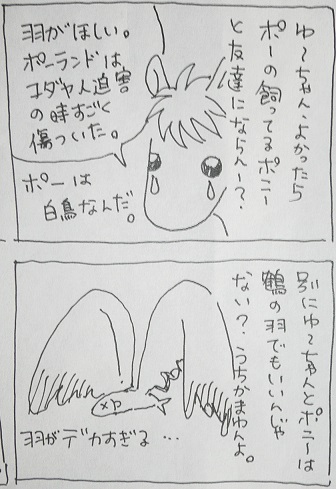 ゆーちゃん、よかったら
ポーの飼ってるポニー
と友達にならんー?
羽がほしい。
ポーランドは、
ユダヤ人迫害
の時すごく
傷ついた。
ポーは
白鳥なんだ。
別にゆーちゃんとポニーは
鶴の羽でもいいんじゃ
ない?うちかまわんよ。
羽がデカすぎる…